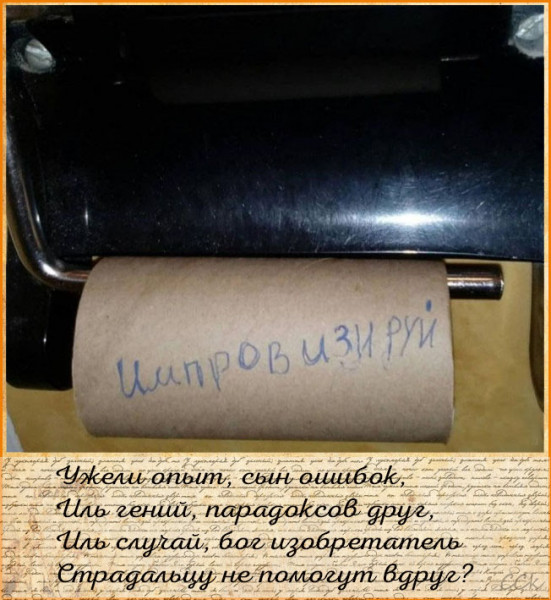 импровизируй
Ужели опыт, сын ошибок,
Иль гений, парадоксов друг,
Иль случай, бог изобретатель
Страдальцу не помогут вдруг?